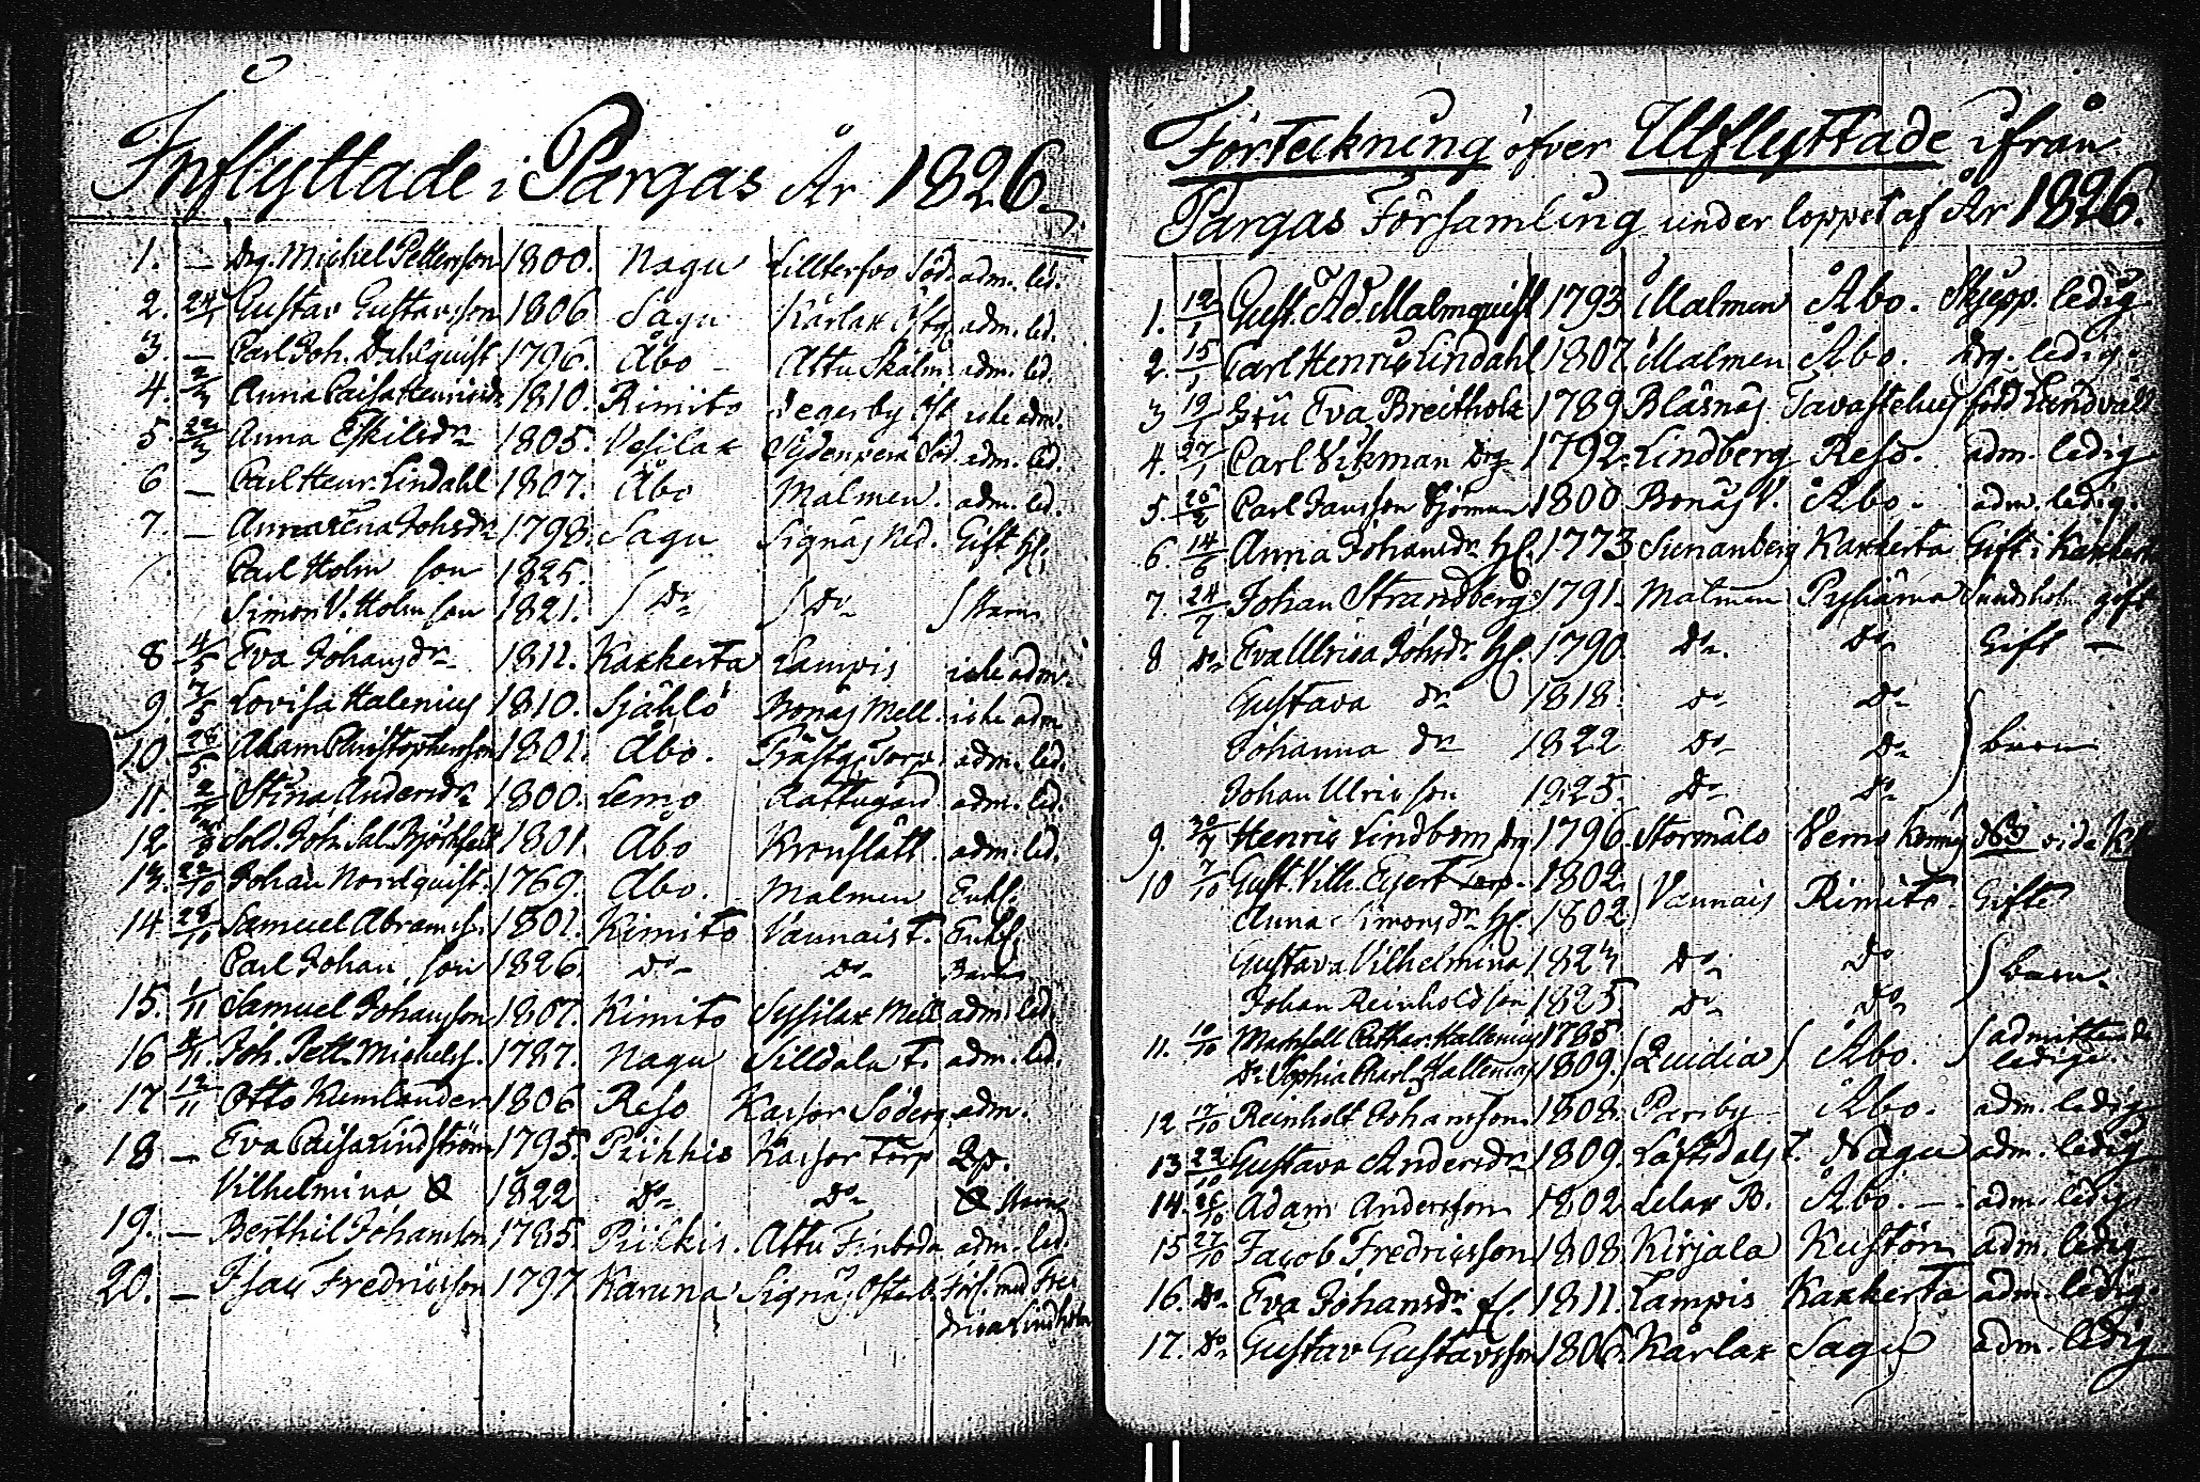 Inflyttade i Pargas År 1826.
1. — Drg. Michel Pettersson 1800. Nagu Lillterfvo Söd. adm. led.
2. 24/1 Gustav Gustavsson 1806 Sagu Kårlax adm. led.
3. — Carl Joh. Dahlquist 1796. Åbo Attu Skälm adm. led.
4. Anna Caisa Henricsdr 1810. Rimito Degerby icke adm.
5. 22/3 Anna Eskilsdr 1805. Vesilax Söd. adm. led.
6 — Carl Henr. Lindahl 1807. Åbo Malmen. adm. led.
7. — Annalena Johsdr 1798. Sagu Signäs Ned. Gift hf.
Carl Holm son 1825.
Simon V. Holm son 1821. Do Do Barn
8 4/5 Eva Johansdr 1811. Kaxkerta Lampis icke adm.
9. 7/5 Lovisa Halenius 1810. Sjählö Bonäs Mell. icke adm
10. 28/5 Adam Christophersson 1801. Åbo. Prästg. Torp. adm. led.
11. Stina Andersdr 1800. Lemo Rattugård adm. led.
12. Sold. Joh. Sal. Björkfelt 1801. Åbo Kronslätt. adm. led.
13. 22/10 Johan Nordquist. 1769. Åbo. Malmen Enkl.
14 28/10 Samuel Abramss. 1801. Kimito Vannais T. Enkl.
Carl Johan son 1826. Do Do Barn
15. 1/11 Samuel Johansson 1807. Kimito Sysilax Mell. adm. led.
16 8/11 Joh. Pett. Michelss. 1787. Nagu Silldala T. adm. led.
17 12/11 Otto Kumlander 1806 Reso Kassor Söderg. adm.
18 — Eva Caisa Lindström 1795. Piikkis Kassor Torp
Vilhelmina 1822 Do Do Barn
19. — Berthil Johansson 1785. Piikkis. Attu Finboda adm. led.
20. — Isac Fredricsson 1797 Karuna Signäs Österb. Förl. med Fre
drica Lindholm
Förteckning öfver Utflyttade ifrån
Pargas Församling under loppet af År 1826.
1. 12/1 Gust. Ad. Malmquist 1793 Malmen Åbo. Skjepp. ledig
2. 15/1 Carl Henric Lindahl 1807 Malmen Åbo. Drg. ledig.
3 19/1 Fru Eva Breitholtz 1789 Bläsnäs Tavastehus född Lundvall
4. 27/1 Carl Vikman Drg 1792. Lindberg Reso. adm. ledig
5. 26/2 Carl Jansson Sjöman 1800 Bonäs V. Åbo. adm. ledig.
6 14/6 Anna Johansdr hf. 1773 Sunanberg Kaxkerta Gift i Kaxkerta
7. 24/7 Johan Strandberg 1791. Malmen Pyhäma Sundholm gift
8 Do Eva Ulrica Johsdr. hf. 1790. Do. Do Gift —
Gustava dr 1818. Do Do
Johanna dr 1822 Do Do barn
Johan Ulric son 1825. Do Do
9. 30/7 Henric Lindbom Drg 1796. Stormälö Vemo
10 7/10 Gust. Vilh. Egert Torp. 1802. Vannais Rimito. Gifte
Anna Simonsdr hf. 1802
Gustava Vilhelmina 1824 Do Do barn.
Johan Reinhold son 1825 Do Do
11. 10/10 Mamsell Cathar. Hallenius 1785 Quidia Åbo. admitterade
Do Sophia Charl. Hallenius 1809. ledige.
12 17/10 Reinholt Johansson 1808. Parsby Åbo. adm. ledig
13 22/10 Gustava Andersdr 1809. Löfsdals T. Nagu adm. ledig
14. 26/10 Adam Andersson 1802 Lelax B. Åbo. — adm. ledig
15 27/10 Jacob Fredricsson 1808. Kirjala Kustön adm. ledig
16. Do Eva Johansdr 1811. Lampis Kaxkerta adm. ledig.
17. Do Gustav Gustavsson 1806. Kårlax Sagu adm. ledig